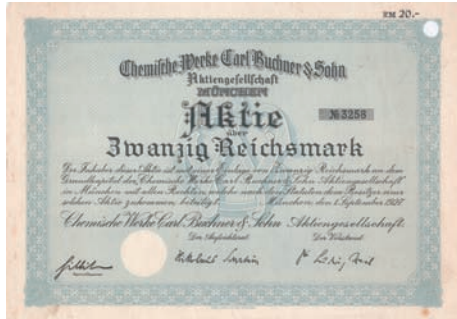 RM 20.-
Chemische Werke Carl Buchner & Sohn
Aktiengesellschaft
MÜNCHEN
Aktie
№ 3258
über
Zwanzig Reichsmark
Der Inhaber dieser Aktie ist mit einer Einlage von Zwanzig Reichsmark an dem
Grundkapital der Chemische Werke Carl Buchner & Sohn Aktiengesellschaft
in München mit allen Rechten, welche nach den Statuten dem Besitzer einer
solchen Aktie zukommen, beteiligt. München, den 1. September 1927.
Chemische Werke Carl Buchner & Sohn Aktiengesellschaft.
Der Aufsichtsrat: Der Vorstand: